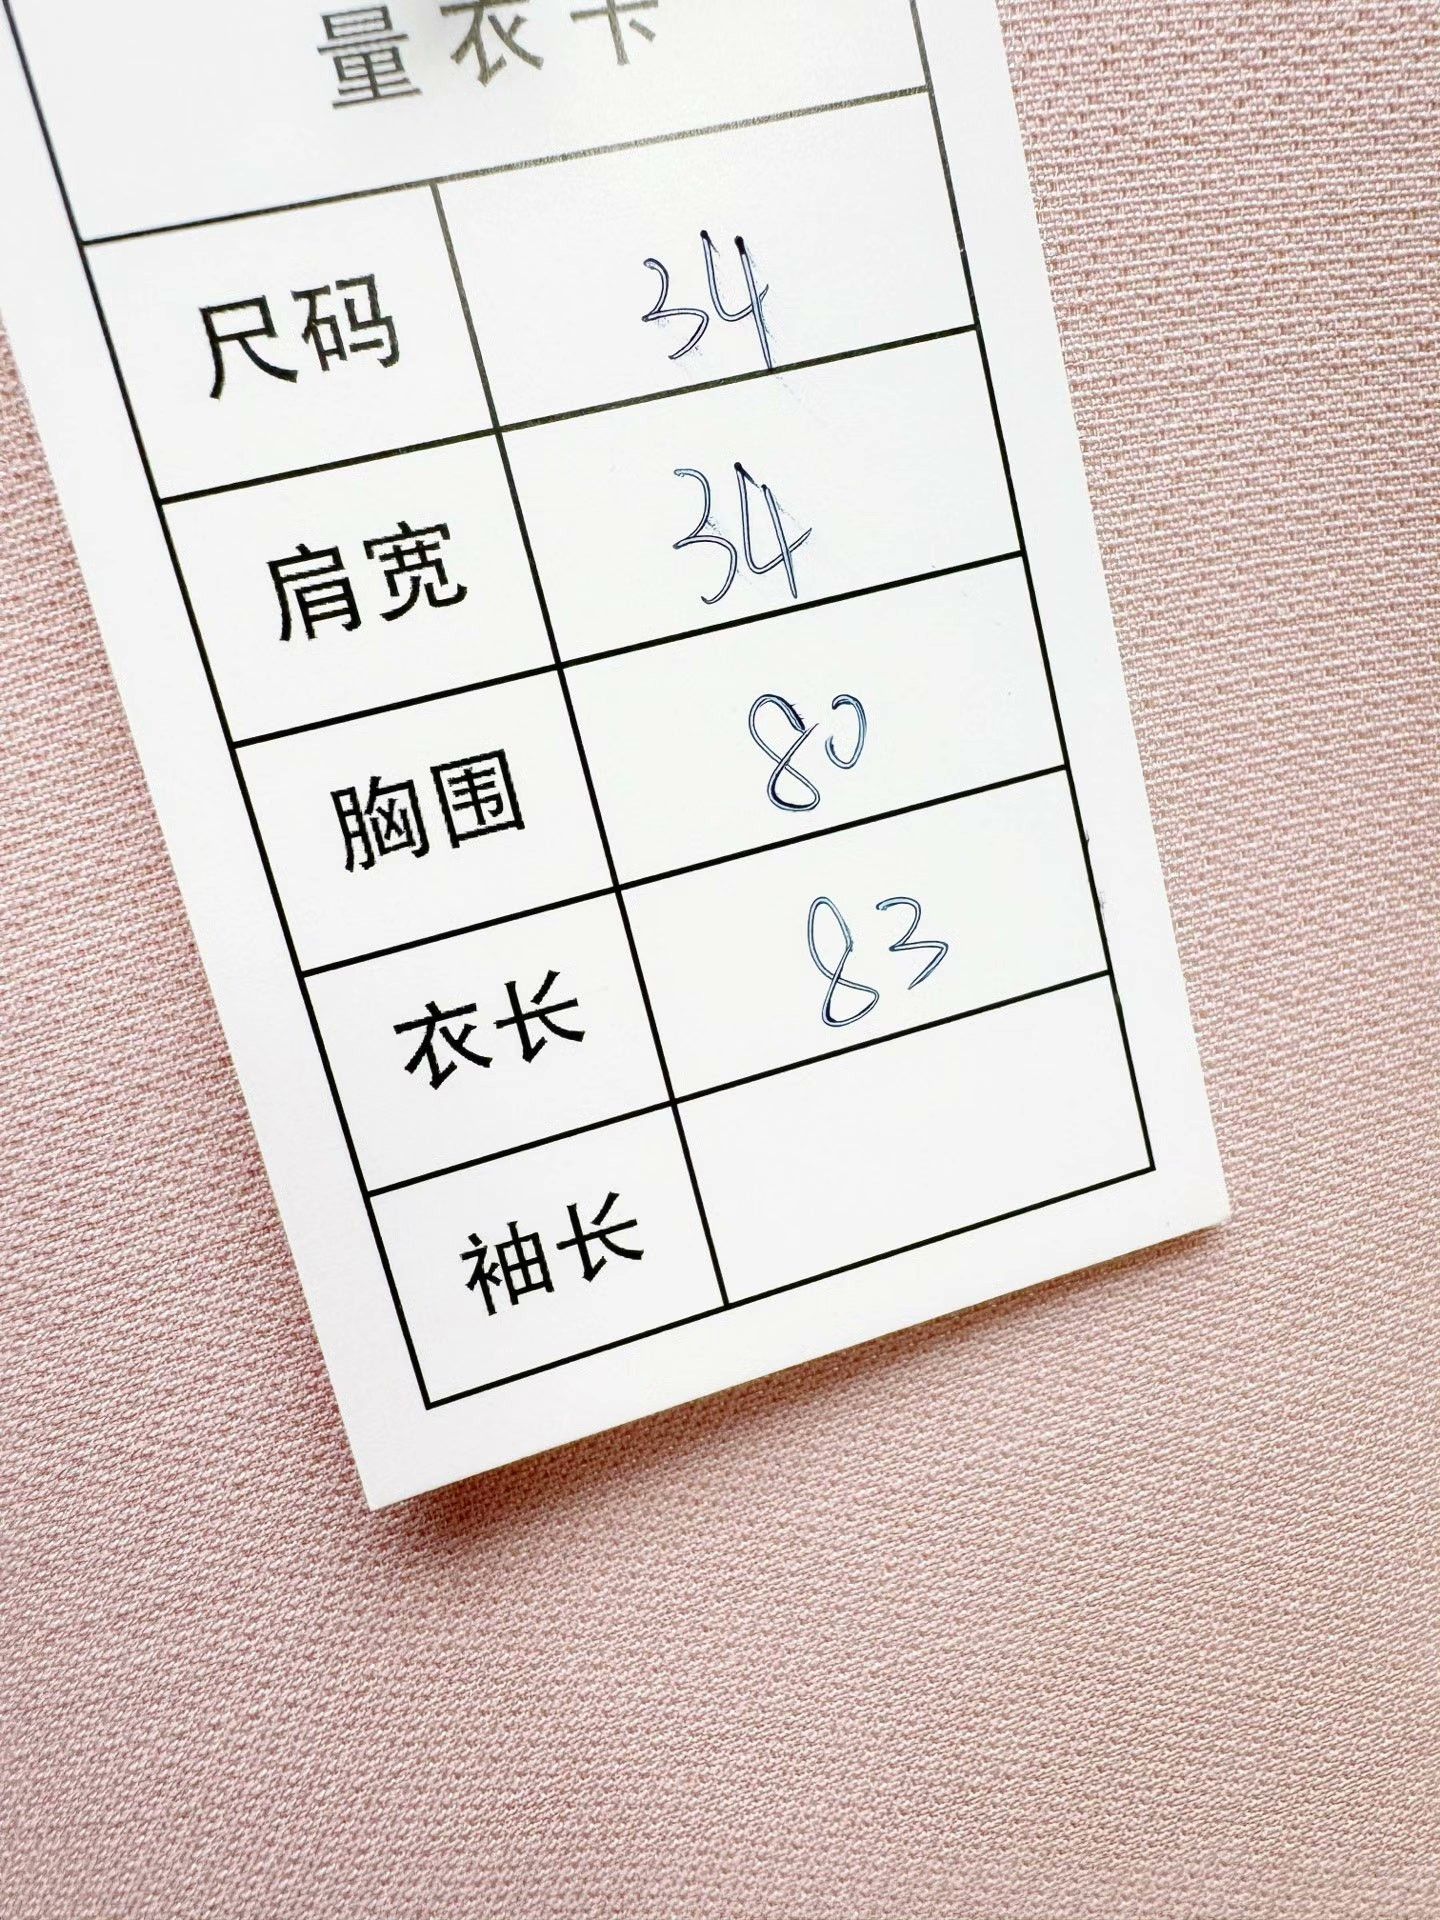 量衣卡
尺码 34
肩宽 34
胸围 80
衣长 83
袖长